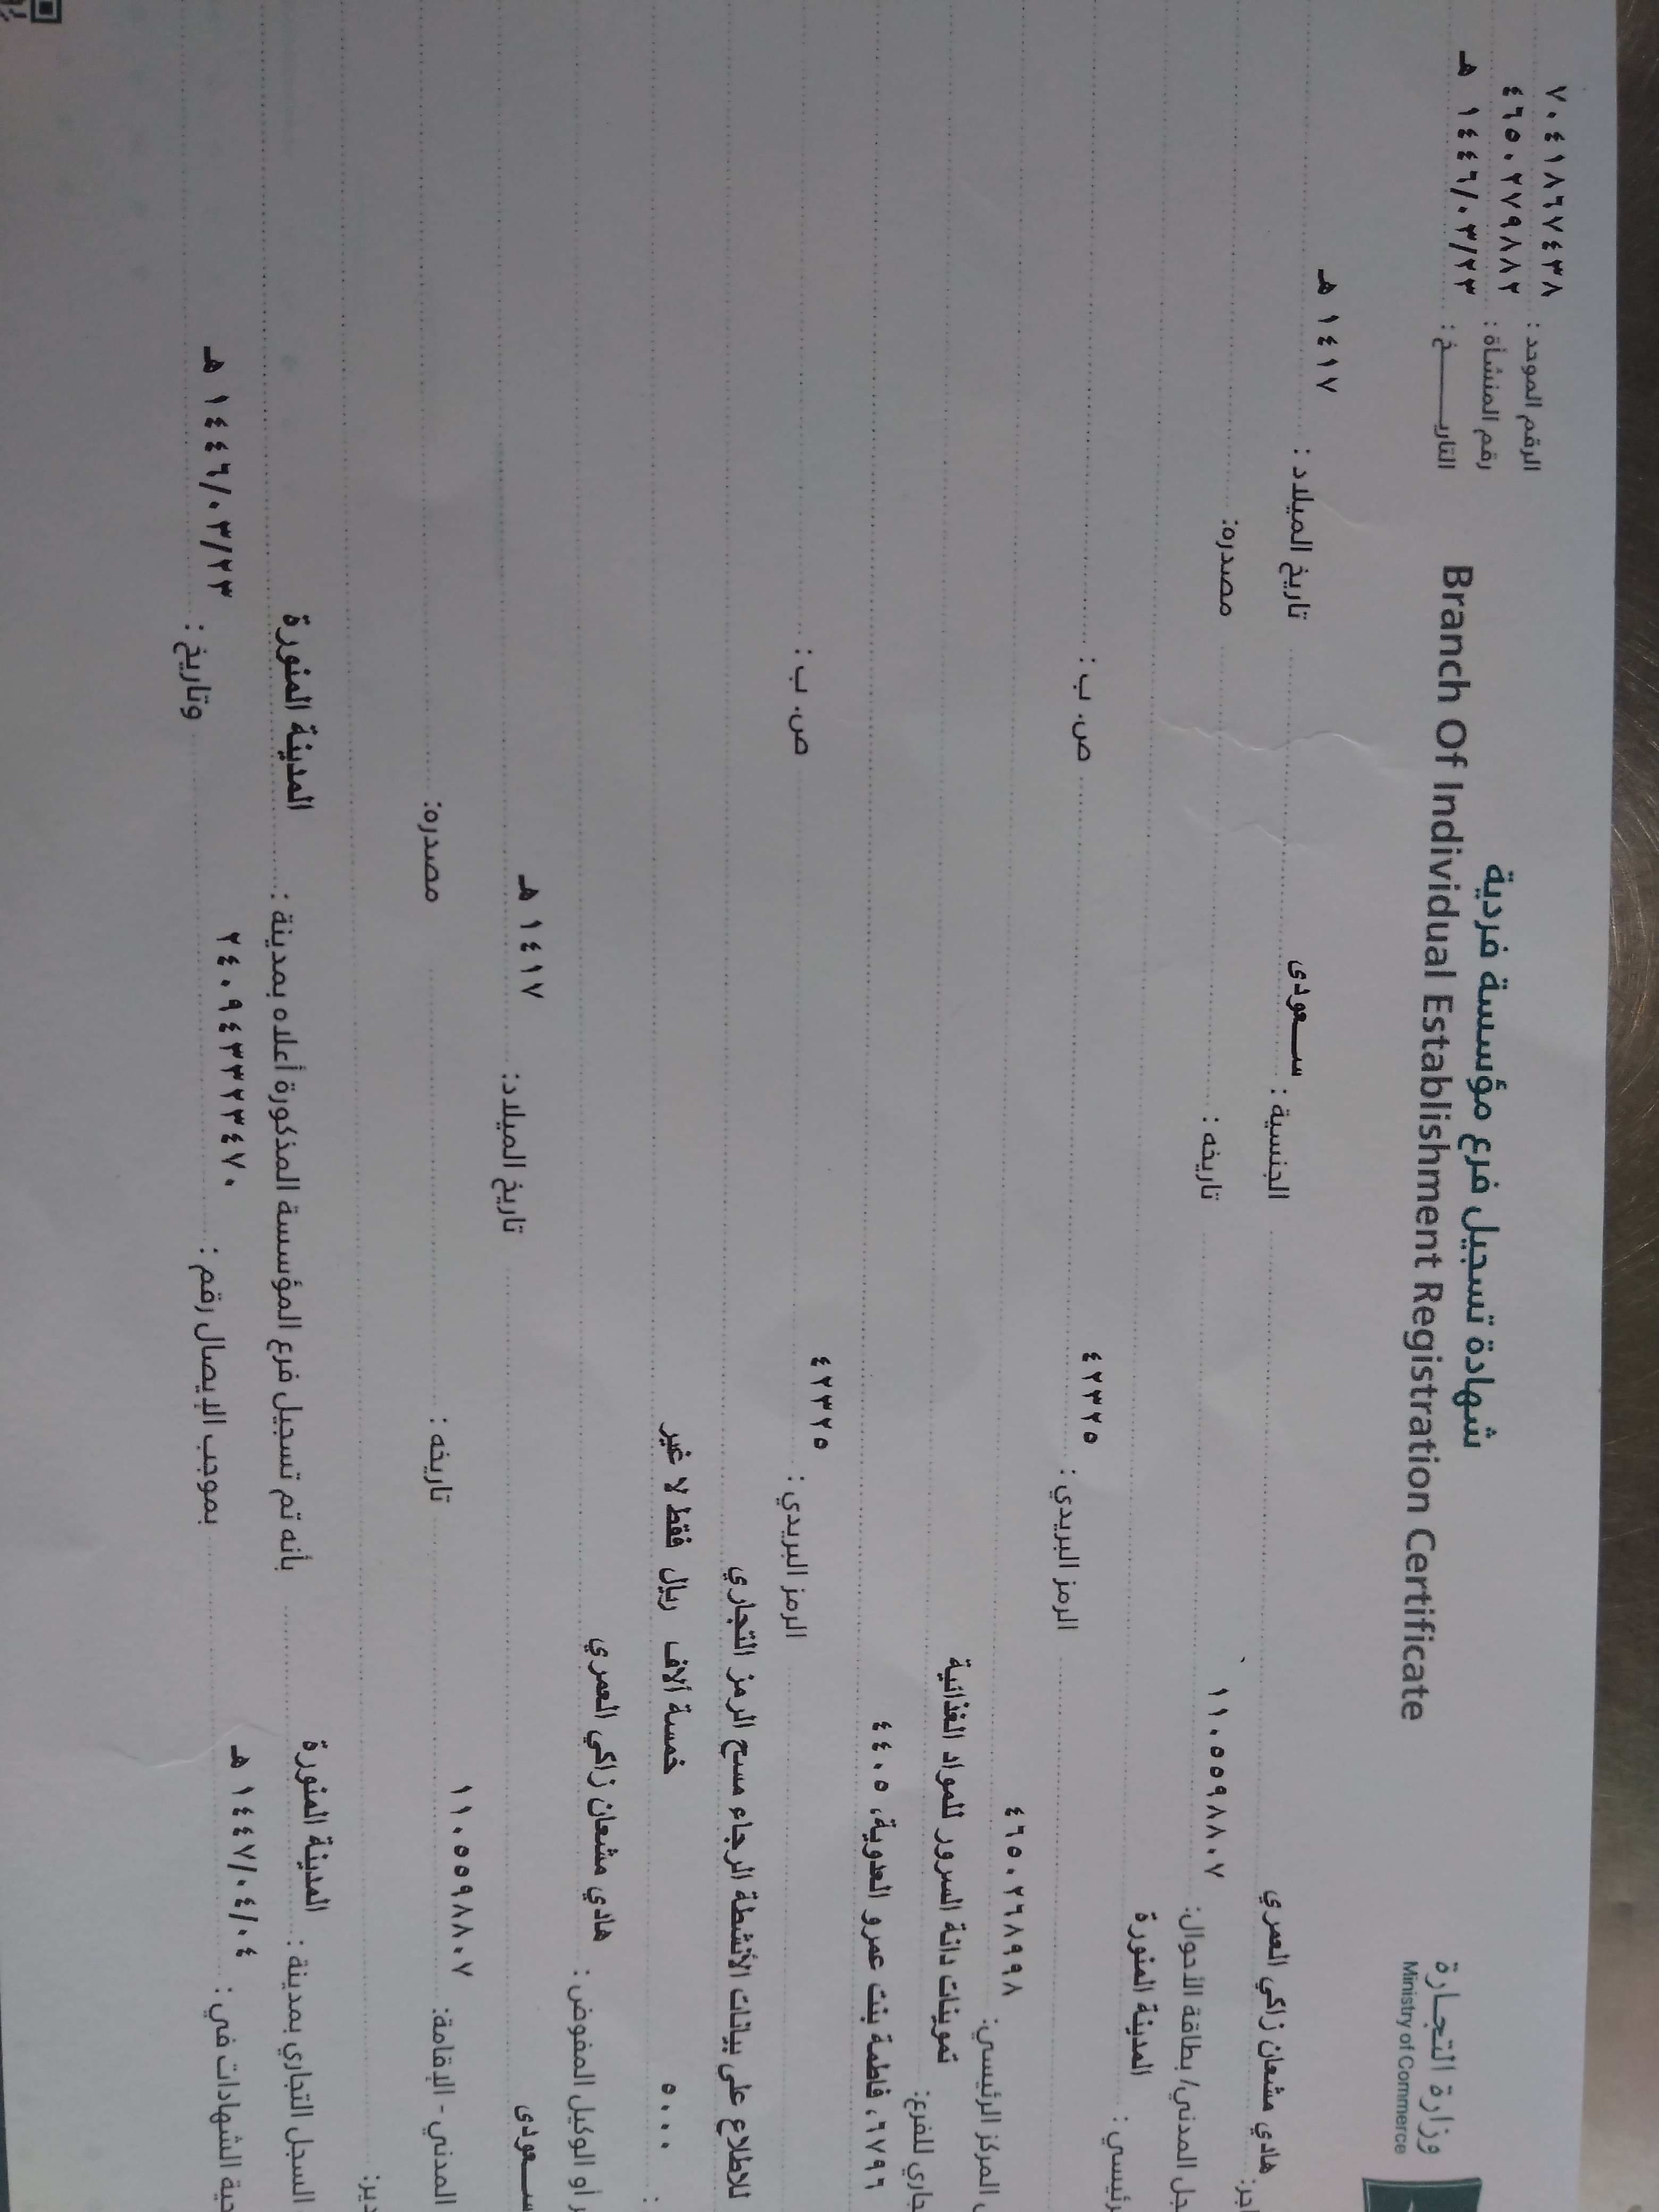 وزارة التجـارة
Ministry of Commerce
شهادة تسجيل فرع مؤسسة فردية
Branch Of Individual Establishment Registration Certificate
الرقم الموحد : ٧٠٤١٨٦٧٤٣٨
رقم المنشأة : ٤٦٥٠٢٧٩٨٨٢
التاريـــــخ : ١٤٤٦/٠٣/٢٣ هـ
هادي مشعان زاكي العمري الجنسية : سـعودى تاريخ الميلاد : ١٤١٧ هـ
المدني/ بطاقة الأحوال: ١١٠٥٥٩٨٨٠٧ تاريخه : مصدره:
المدينة المنورة
الرمز البريدي : ٤٢٣٢٥ ص. ب :
المركز الرئيسي: ٤٦٥٠٢٦٨٩٩٨
للفرع: تموينات دانة السرور للمواد الغذائية
٦٧٩٦، فاطمة بنت عمرو العدوية، ٤٤٠٥
الرمز البريدي : ٤٢٣٢٥ ص. ب :
للاطلاع على بيانات الأنشطة الرجاء مسح الرمز التجاري
: ٥٠٠٠ خمسة آلاف ريال فقط لا غير
أو الوكيل المفوض : هادي مشعان زاكي العمري
سـعودى تاريخ الميلاد: ١٤١٧ هـ
المدني - الإقامة: ١١٠٥٥٩٨٨٠٧ تاريخه : مصدره:
السجل التجاري بمدينة : المدينة المنورة بأنه تم تسجيل فرع المؤسسة المذكورة أعلاه بمدينة : المدينة المنورة
الشهادات في : ١٤٤٧/٠٤/٠٤ هـ بموجب الإيصال رقم : ٢٤٠٩٤٣٣٢٣٤٧٠ وتاريخ : ١٤٤٦/٠٣/٢٣ هـ